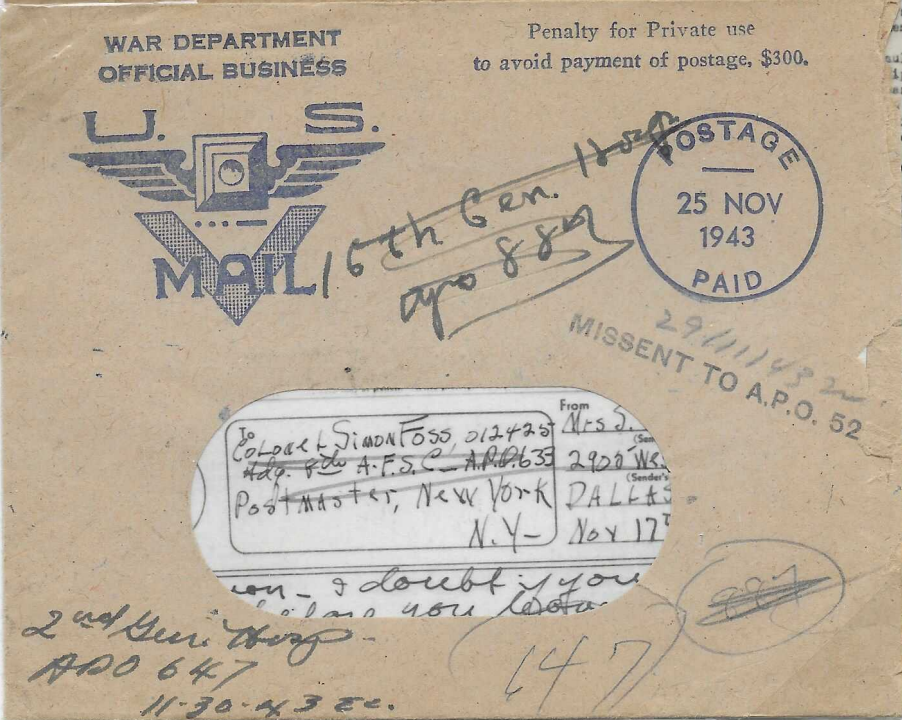 WAR DEPARTMENT
OFFICIAL BUSINESS
Penalty for Private use
to avoid payment of postage, $300.
U. S.
V
MAIL
15th Gen. Hosp
apo 887
POSTAGE
25 NOV
1943
PAID
29/11/43
MISSENT TO A.P.O. 52
To
COLONEL SIMON FOSS, 012425
Hdq. 8th A.F.S.C. A.P.O. 633
POSTMASTER, NEW YORK
N.Y-
From
Mrs S.
2900 We
(Sender's
DALLAS
Nov 17
I doubt if you
you
887
2nd Gen Hosp
APO 647
11-30-43 Ec.
647